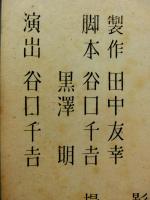 製作 田中友幸
脚本 谷口千吉
黒澤 明
演出 谷口千吉